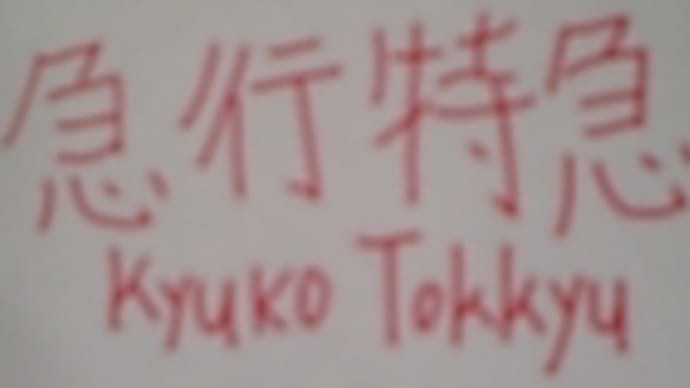 急行特急
Kyuko Tokkyu